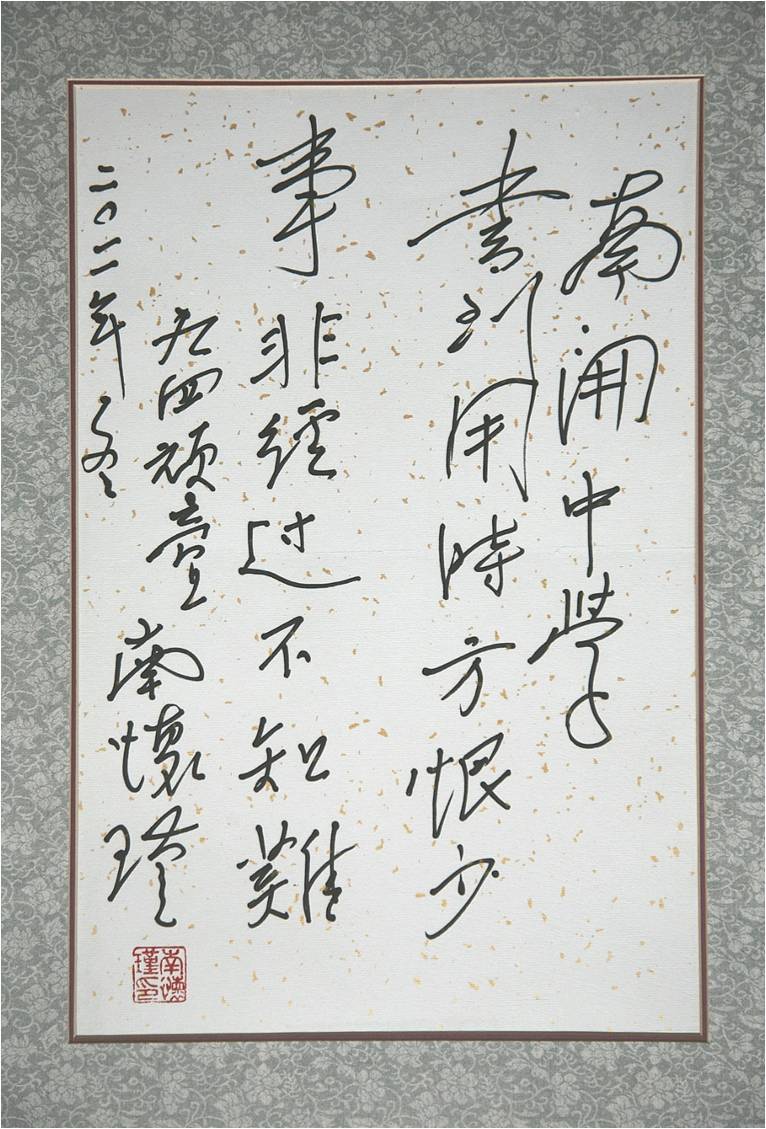 南開中學
書到用時方恨少
事非經过不知難
九四頑童
南懷瑾
二〇一一年冬
南懷瑾印